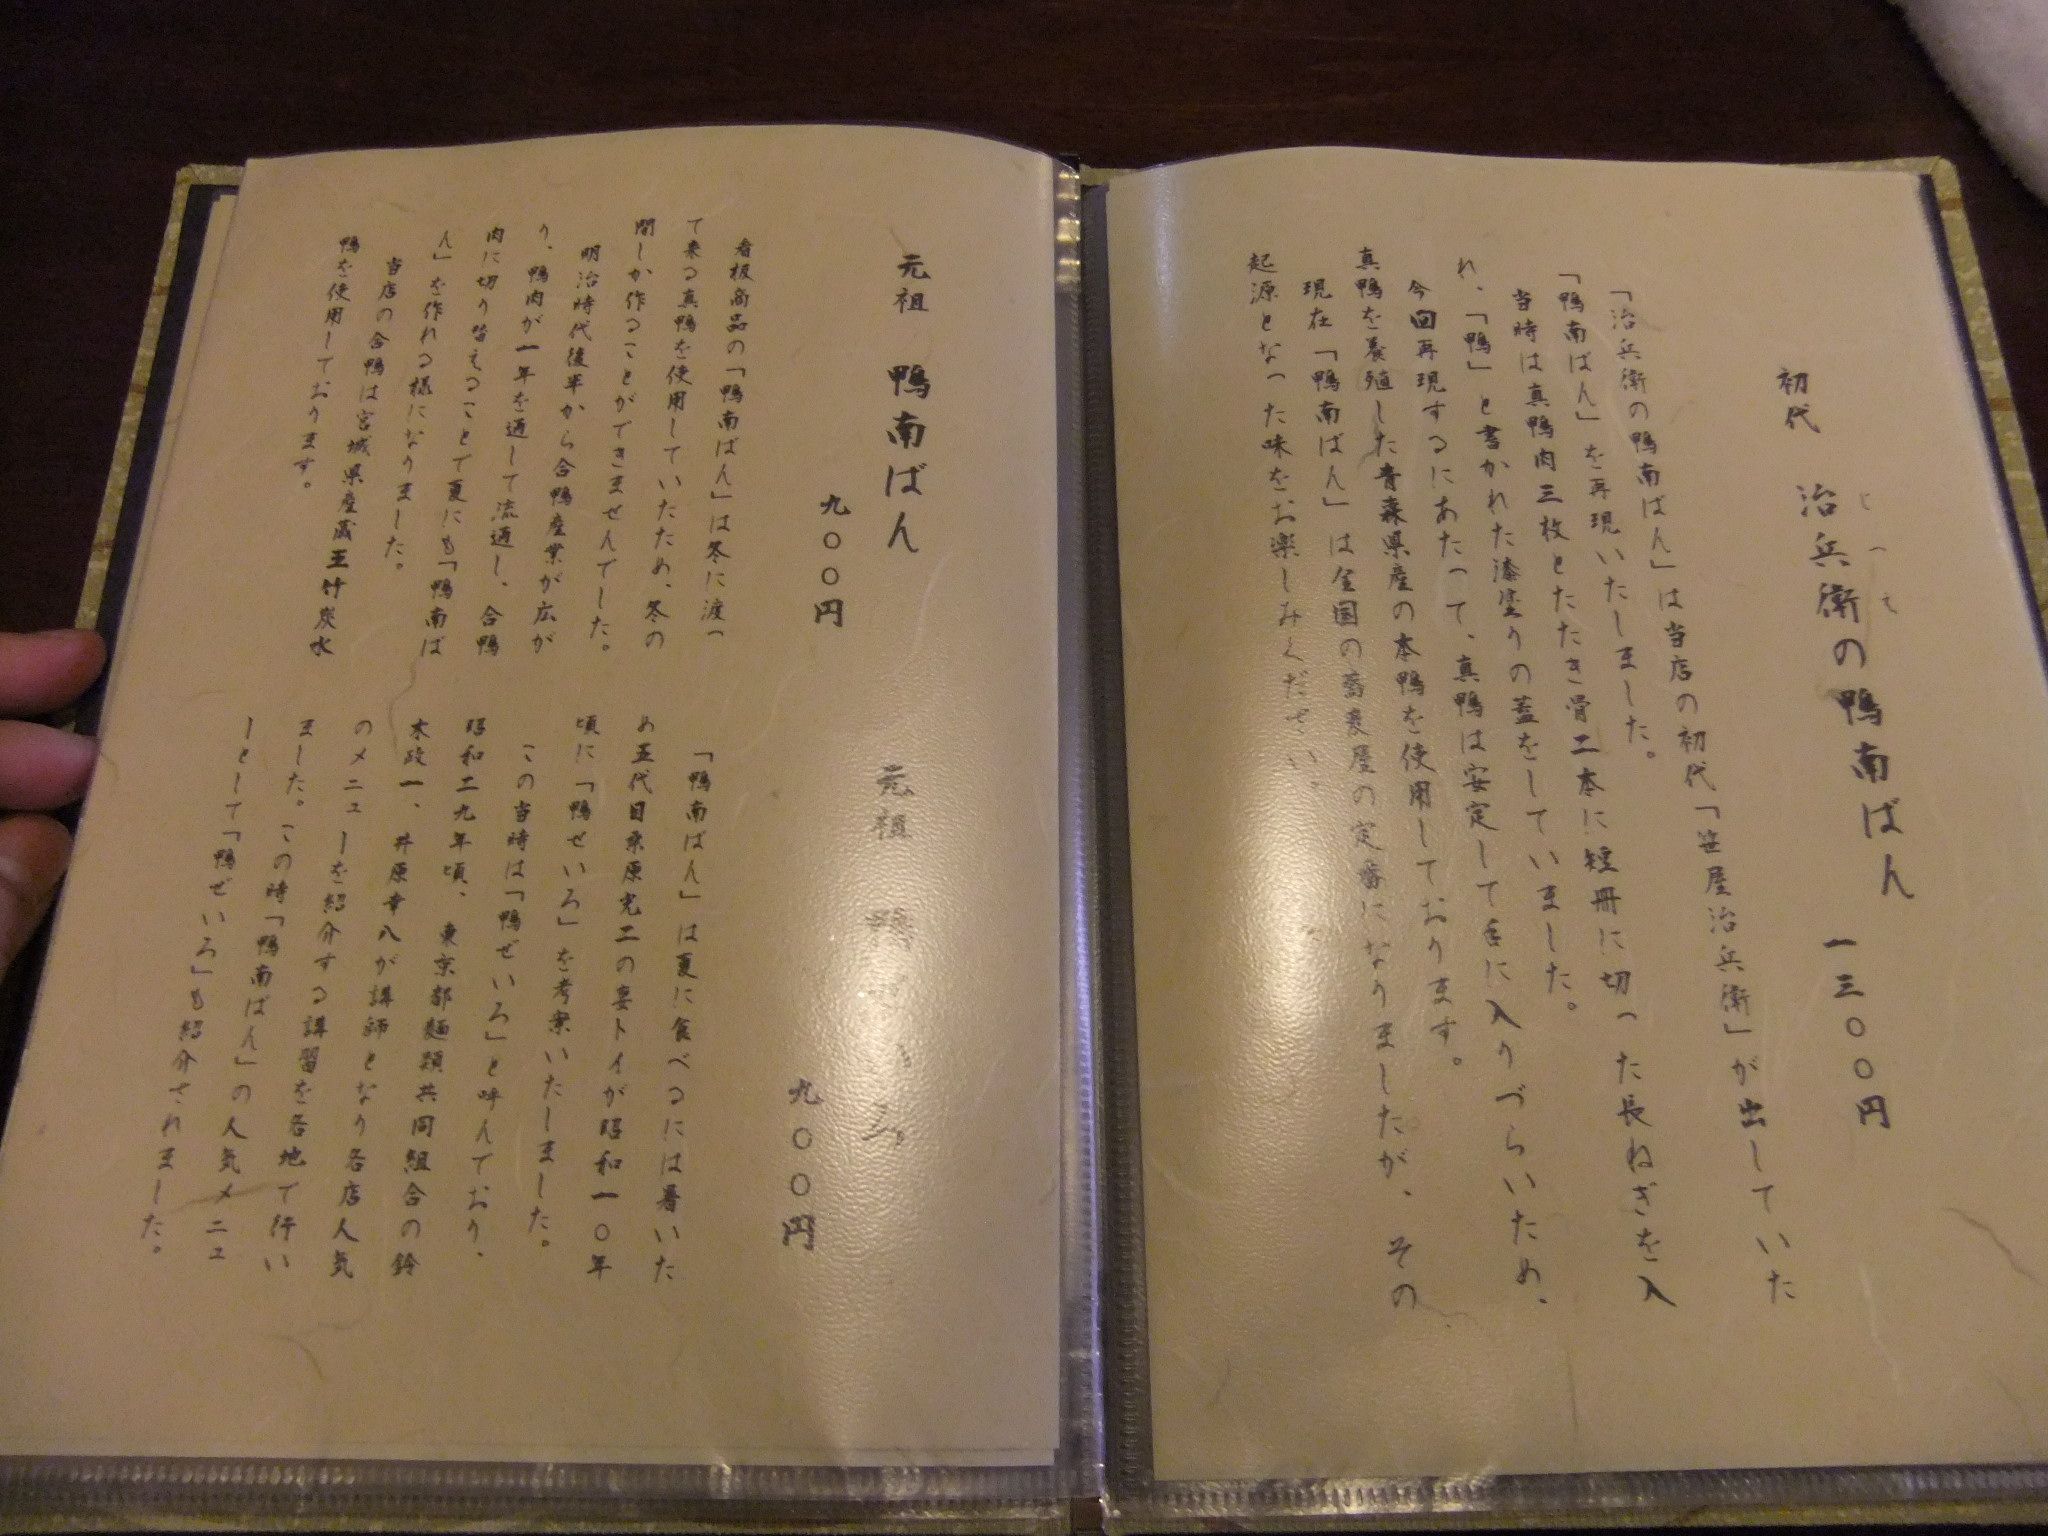 初代 治兵衛の鴨南ばん 一三〇〇円
「治兵衛の鴨南ばん」は当店の初代「笹屋治兵衛」が出していた
「鴨南ばん」を再現いたしました。
当時は真鴨肉三枚とたたき骨二本に短冊に切った長ねぎを入
れ、「鴨」と書かれた漆塗りの蓋をしていました。
今回再現するにあたって、真鴨は安定して手に入りづらいため、
真鴨を養殖した青森県産の本鴨を使用しております。
現在「鴨南ばん」は全国の蕎麦屋の定番になりましたが、その
起源となった味をお楽しみください。
元祖 鴨南ばん
九〇〇円
看板商品の「鴨南ばん」は冬に渡っ
て来る真鴨を使用していたため、冬の
間しか作ることができませんでした。
明治時代後半から合鴨産業が広が
り、鴨肉が一年を通して流通し、合鴨
肉に切り替えることで夏にも「鴨南ば
ん」を作れる様になりました。
当店の合鴨は宮城県産蔵王竹炭水
鴨を使用しております。
元祖 鴨ぜいろ
九〇〇円
「鴨南ばん」は夏に食べるには暑いた
め五代目桑原光二の妻トイが昭和一〇年
頃に「鴨ぜいろ」を考案いたしました。
この当時は「鴨ぜいろ」と呼んでおり、
昭和二九年頃、東京都麺類共同組合の鈴
木政一、井原幸八が講師となり各店人気
のメニューを紹介する講習を各地で行い
ました。この時「鴨南ばん」の人気メニュ
ーとして「鴨ぜいろ」も紹介されました。